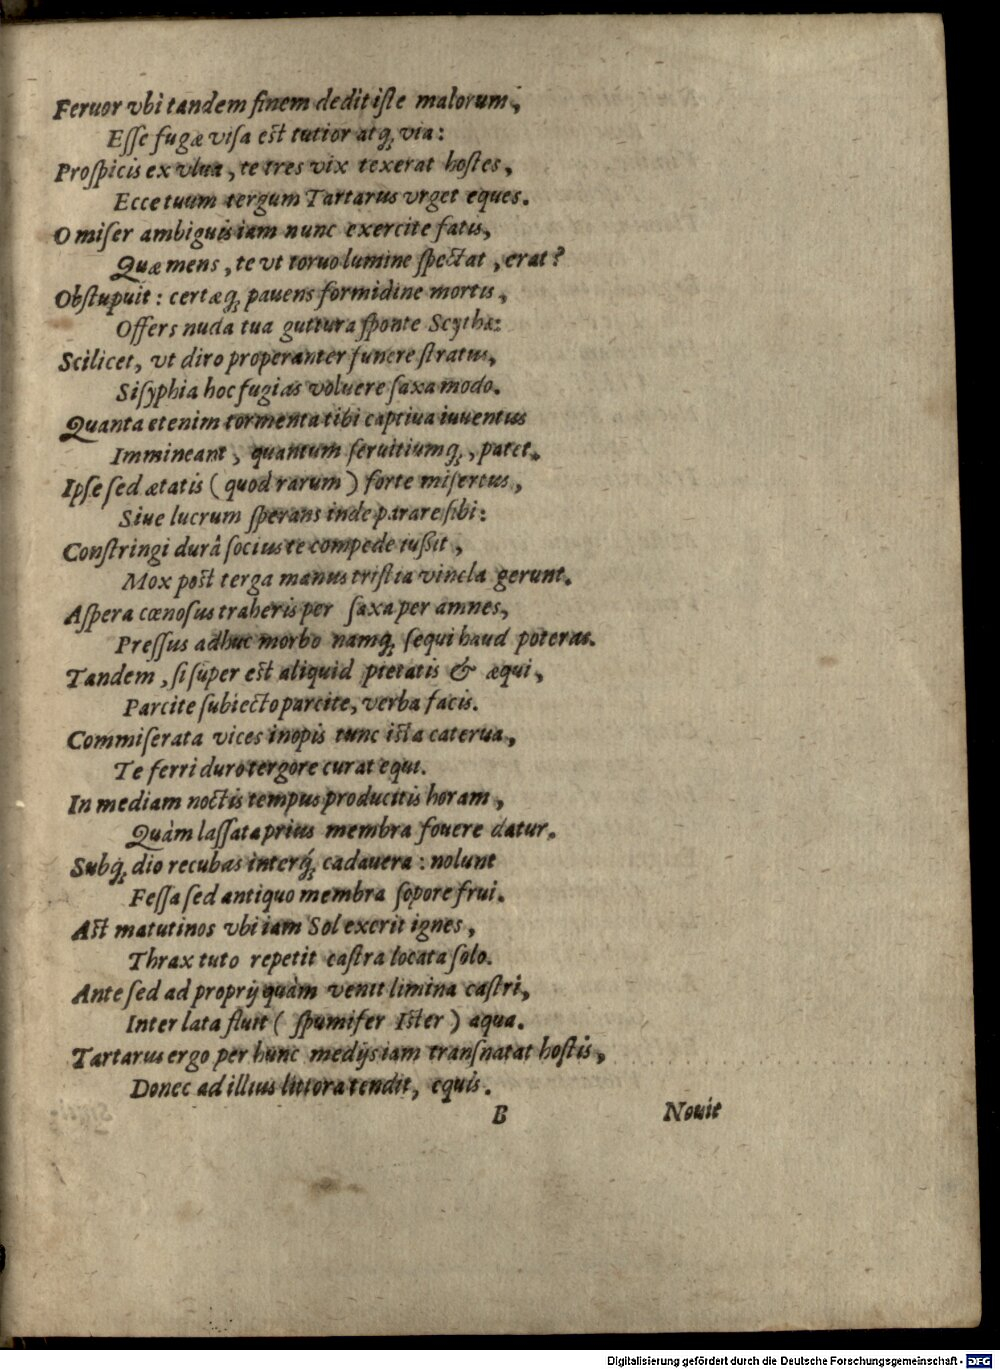 Feruor vbi tandem finem dedit iste malorum,
Esse fugæ visa est tutior atq; via:
Prospicis ex vlua, te tres vix texerat hostes,
Ecce tuum tergum Tartarus vrget eques.
O miser ambiguis iam nunc exercite fatis,
Quæ mens, te vt toruo lumine spectat, erat?
Obstupuit: certæq; pavens formidine mortis,
Offers nuda tua guttura sponte Scythæ:
Scilicet, vt diro properanter funere stratus,
Sisyphia hoc fugias voluere saxa modo.
Quanta etenim tormenta tibi captiua iuuentus
Immineant, quantum seruitiumq;, patet.
Ipse sed ætatis (quod rarum) forte misertus,
Siue lucrum sperans inde parare sibi:
Constringi durâ socius te compede iussit,
Mox post terga manus tristia vincla gerunt.
Aspera cœnosus traheris per saxa per amnes,
Pressus adhuc morbo namq; sequi haud poteras.
Tandem, si super est aliquid pietatis & æqui,
Parcite subiecto parcite, verba facis.
Commiserata vices inopis tunc ista caterua,
Te ferri duro tergore curat equi.
In mediam noctis tempus producitis horam,
Quàm lassata prius membra fouere datur.
Subq́; dio recubas interq́; cadauera: nolunt
Fessa sed antiquo membra sopore frui.
Ast matutinos vbi iam Sol exerit ignes,
Thrax tuto repetit castra locata solo.
Ante sed ad proprij quàm venit limina castri,
Inter lata fluit (spumifer Ister) aqua.
Tartarus ergo per hunc medijs iam transnatat hostis,
Donec ad illius littora tendit, equis.
B Nouit
Digitalisierung gefördert durch die Deutsche Forschungsgemeinschaft - DFG